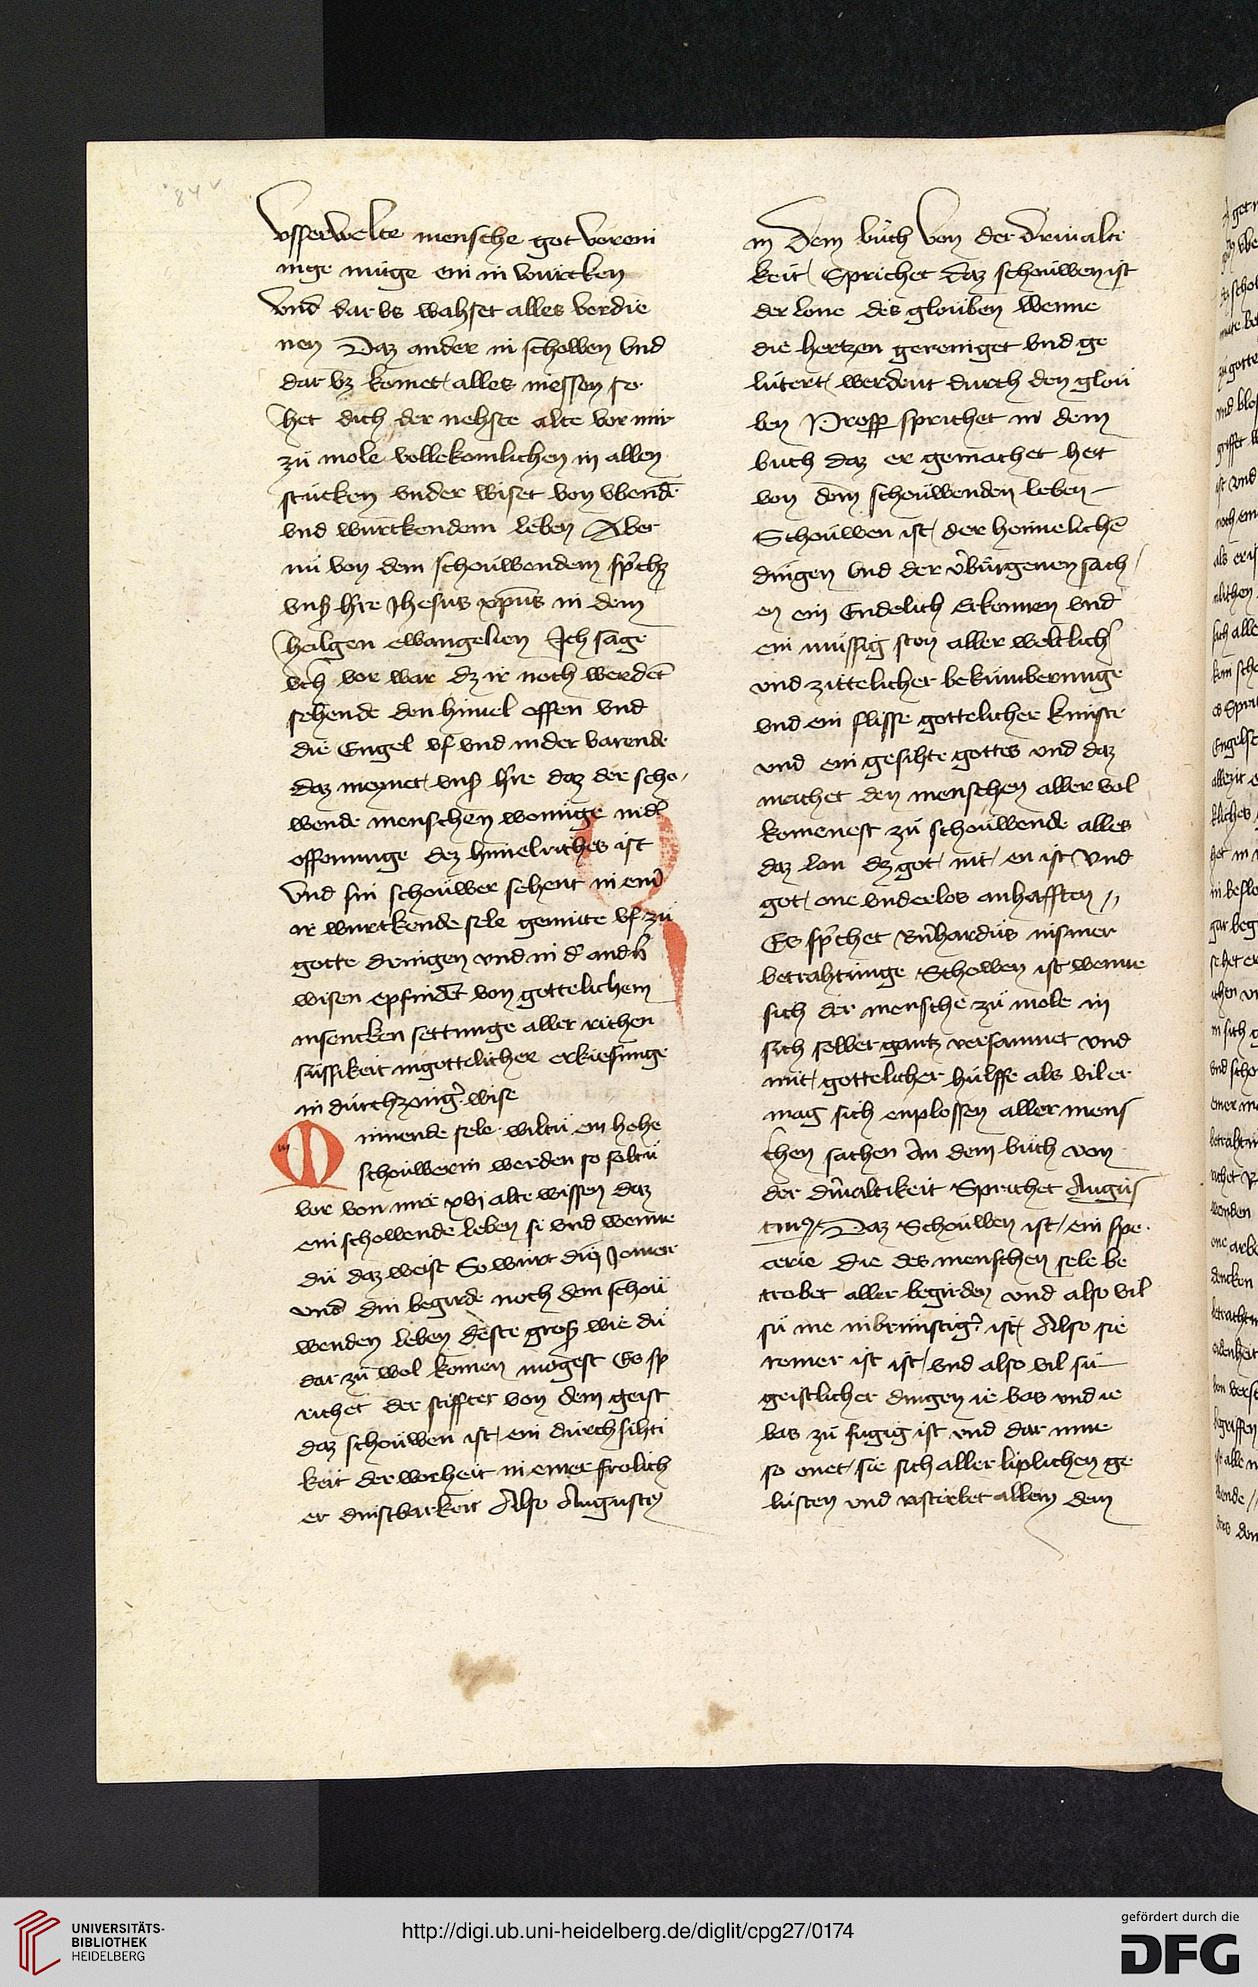 84 v
vsserwelte mensche got voreni
nige muge ein in wurcken
vnd dar vs wahset alles verdie
nen Daz ander in schowen vnd
dar vz komet alles niessen so
het dich der nehste alte vor mir
zü mole vollekomlichen in allen
stücken vnder wiset von vbend̄
vnd würckendem leben Aber
nü von dem schoüwendem
vnß h're Jhesus xp̄us in dem
heilgen ewangelien Jch sage
vch vor war dz ir noch werdēt
sehende den himel offen vnd
die Engel vf vnd nider varende
daz meynet vnß h're daz der scho
wende menschen wonūge
offenunge dez himelriches ist
vnd sin schoüwer sehent in
ir würckende sele gemüte vf zü
gotte dringen vnd in
wisen epfindēt von gottelichem
insencken settunge aller richen
süssikeit ingottelicher erkiesunge
in wise
Minnende sele wiltü ein hohe
schoüwerin werden so soltü
vor von mir xvj alte wissen daz
ein schowende leben si vnd wenne
dü daz weist So würt din Jomer
vnd din begirde noch dem schoü
wenden leben deste groß wie dü
dar zü wol komen mogest Es sp
richet der stiffter von dem geist
daz schoüwen ist ein durchsihti
keit der worheit in einer frolich
er dinstbarkeit Also Augusten
in dem büch von der drinalti
keit Sprichet daz schoüwen ist
der lone des gloüben wenne
die hertzen gereiniget vnd ge
lütert werdent durch den gloü
ben Prosꝑ sprichet in dem
buch daz er gemachet het
von dem schoüwenden leben
Schoüwen ist der heimelichē
dingen vnd der v'bürgenen sach
en ein Endelich Erkennen vnd
ein müssig ston aller weltlich'
vnd zittelicher bekümbernüge
vnd ein flisse gottelicher künste
vnd ein gesihte gottes vnd daz
machet den menschen aller vol
komenest zü schoüwende alles
daz lan dz got nit en ist vnd
got one vnderlos anhafften
Es sp'chet B'nhardus siner
betrahtunge Schowen ist wenne
sich der mensche zü mole in
sich selber gantz versamnet vnd
mit gottelicher hülffe als vil er
mag sich enplossen aller mens
chen sachen An dem büch von
der Sprichet Augüs
Daz Schoüwen ist ein spe
cerie die des menschen sele be
trobet aller begirden vnd also vil
sü ie inbrünstig' ist Also sie
reiner ist ist vnd also vil sü
geistlicher dingen ie bas vnd ie
bas zü fugig ist vnd dar inne
so sie sich aller liplichen ge
lüsten vnd v'stirbet allem dem
UNIVERSITÄTS-
BIBLIOTHEK
HEIDELBERG
http://digi.ub.uni-heidelberg.de/diglit/cpg27/0174
gefördert durch die
DFG